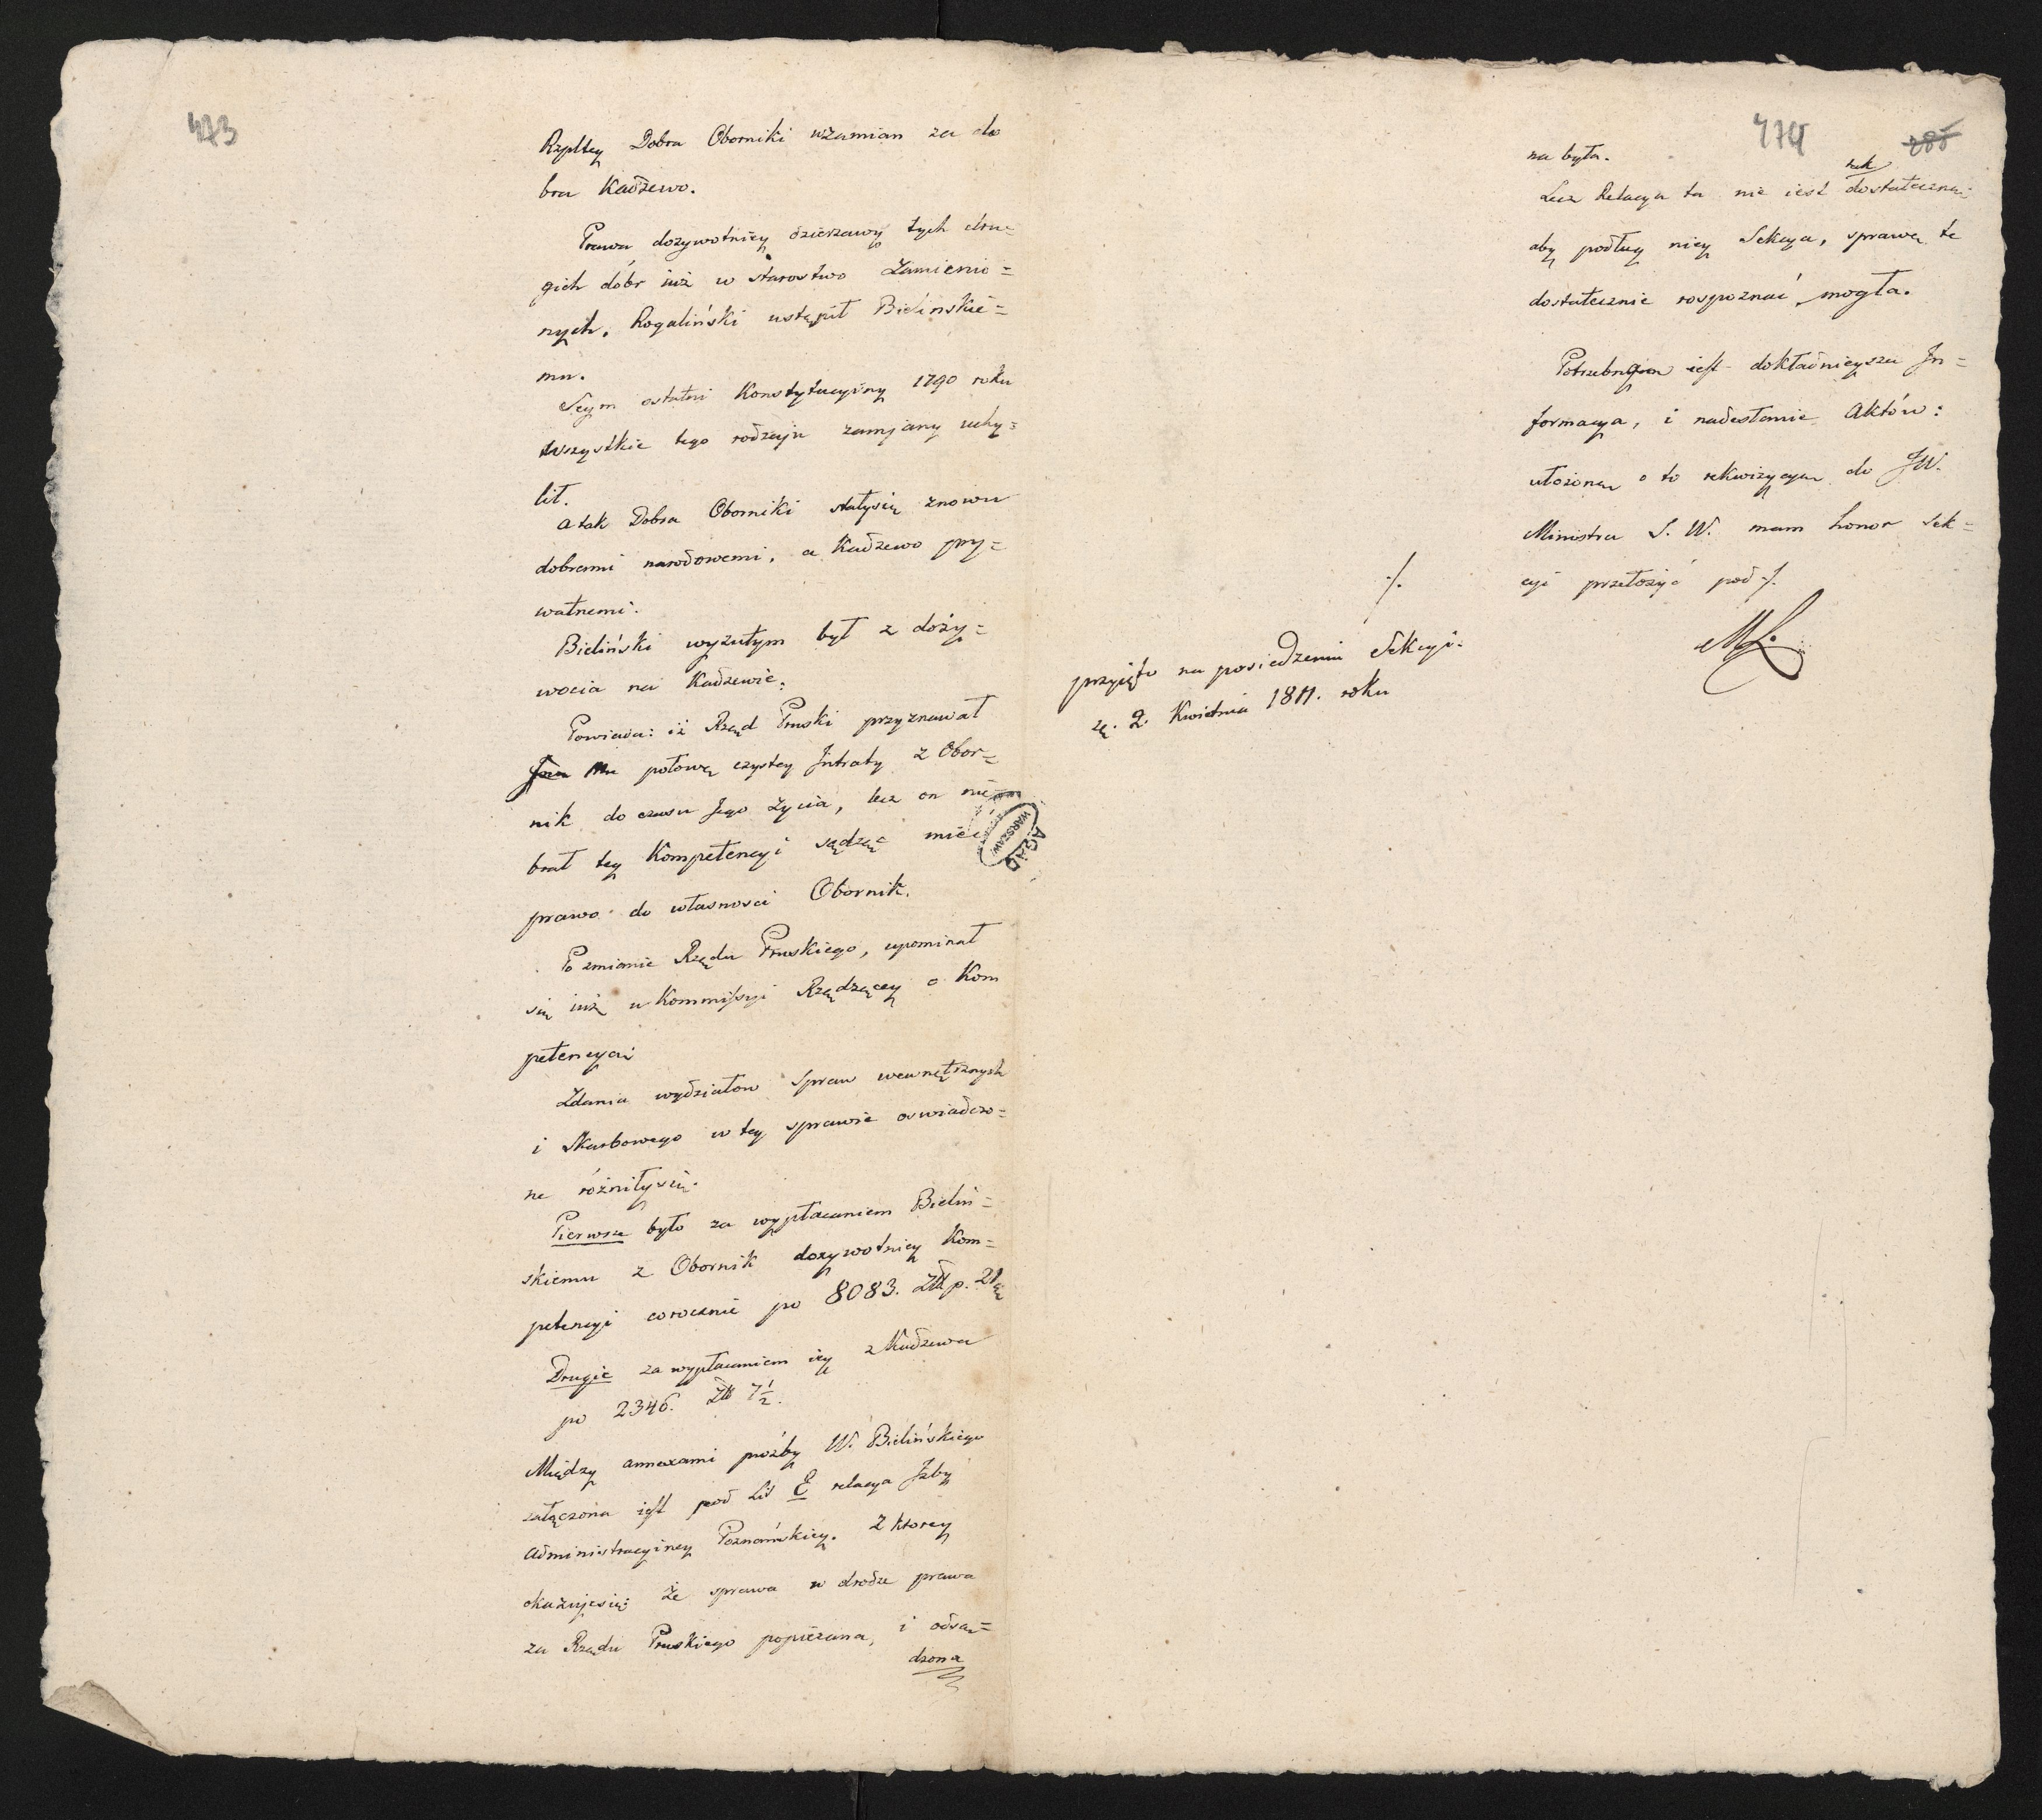 473
Rzpltey Dobra Oborniki wzamian za do
bra Kadzewo.
Prawa dozywotniey dzierzawy tych dru=
gich dóbr iuż w starostwo Zamienio=
nych, Rogaliński ustąpił Bielinskie=
mu.
Seym ostatni Konstytucyiny 1790 roku
wszystkie tego rodzaju zamiany uchy=
lił.
a tak Dobra Oborniki stałysię znowu
dobrami narodowemi, a Kadzewo pry=
watnemi.
Bieliński wyzutym był z doży=
wocia na Kadzewie.
Powiada: iż Rząd Pruski przyznawał
Mu połowę czystey Jntraty z Obor=
nik do czasu Jego życia, lecz on nie
brał tey Kompetencyi sądząc mieć
prawo do własnosci Obornik.
Po zmianie Rządu Pruskiego, upominał
się iuż u Kommissyi Rządzącey o Kom
petencyą
Zdania wydziałow Spraw wewnętrznych
i Skarbowego w tey sprawie oswiadczo=
ne różniłysię.
Pierwsze było za wypłacaniem Bieliń=
skiemu z Obornik dozywotniey Kom=
petencyi corocznie po 8083. Złł p. 21
Drugie za wypłacaniem iey z Kadzewa
po 2346. Złł 7½.
Między annexami prożby W. Bielińskiego
załączona iest pod Lit E relacya Jzby
administracyiney Poznańskiey. Z ktorey
okazujesię: że sprawa w drodze prawa
za Rządu Pruskiego popierana, i odsą=
dzona
AGAD
WARSZAW
474
285
na była.
Lecz Relacya ta nie iest tak dostateczną
aby podług niey Sekcya, sprawę tę
dostatecznie rospoznać mogła.
Potrzebna iest dokładnieysza Jn=
formacya, i nadesłanie Aktów:
ułożoną o to rekwizycyą do JW.
Ministra S. W. mam honor Sek=
cyi przełożyć pod ./.
./.
przyięto na posiedzeniu Sekcyi.
2 Kwietnia 1811. roku